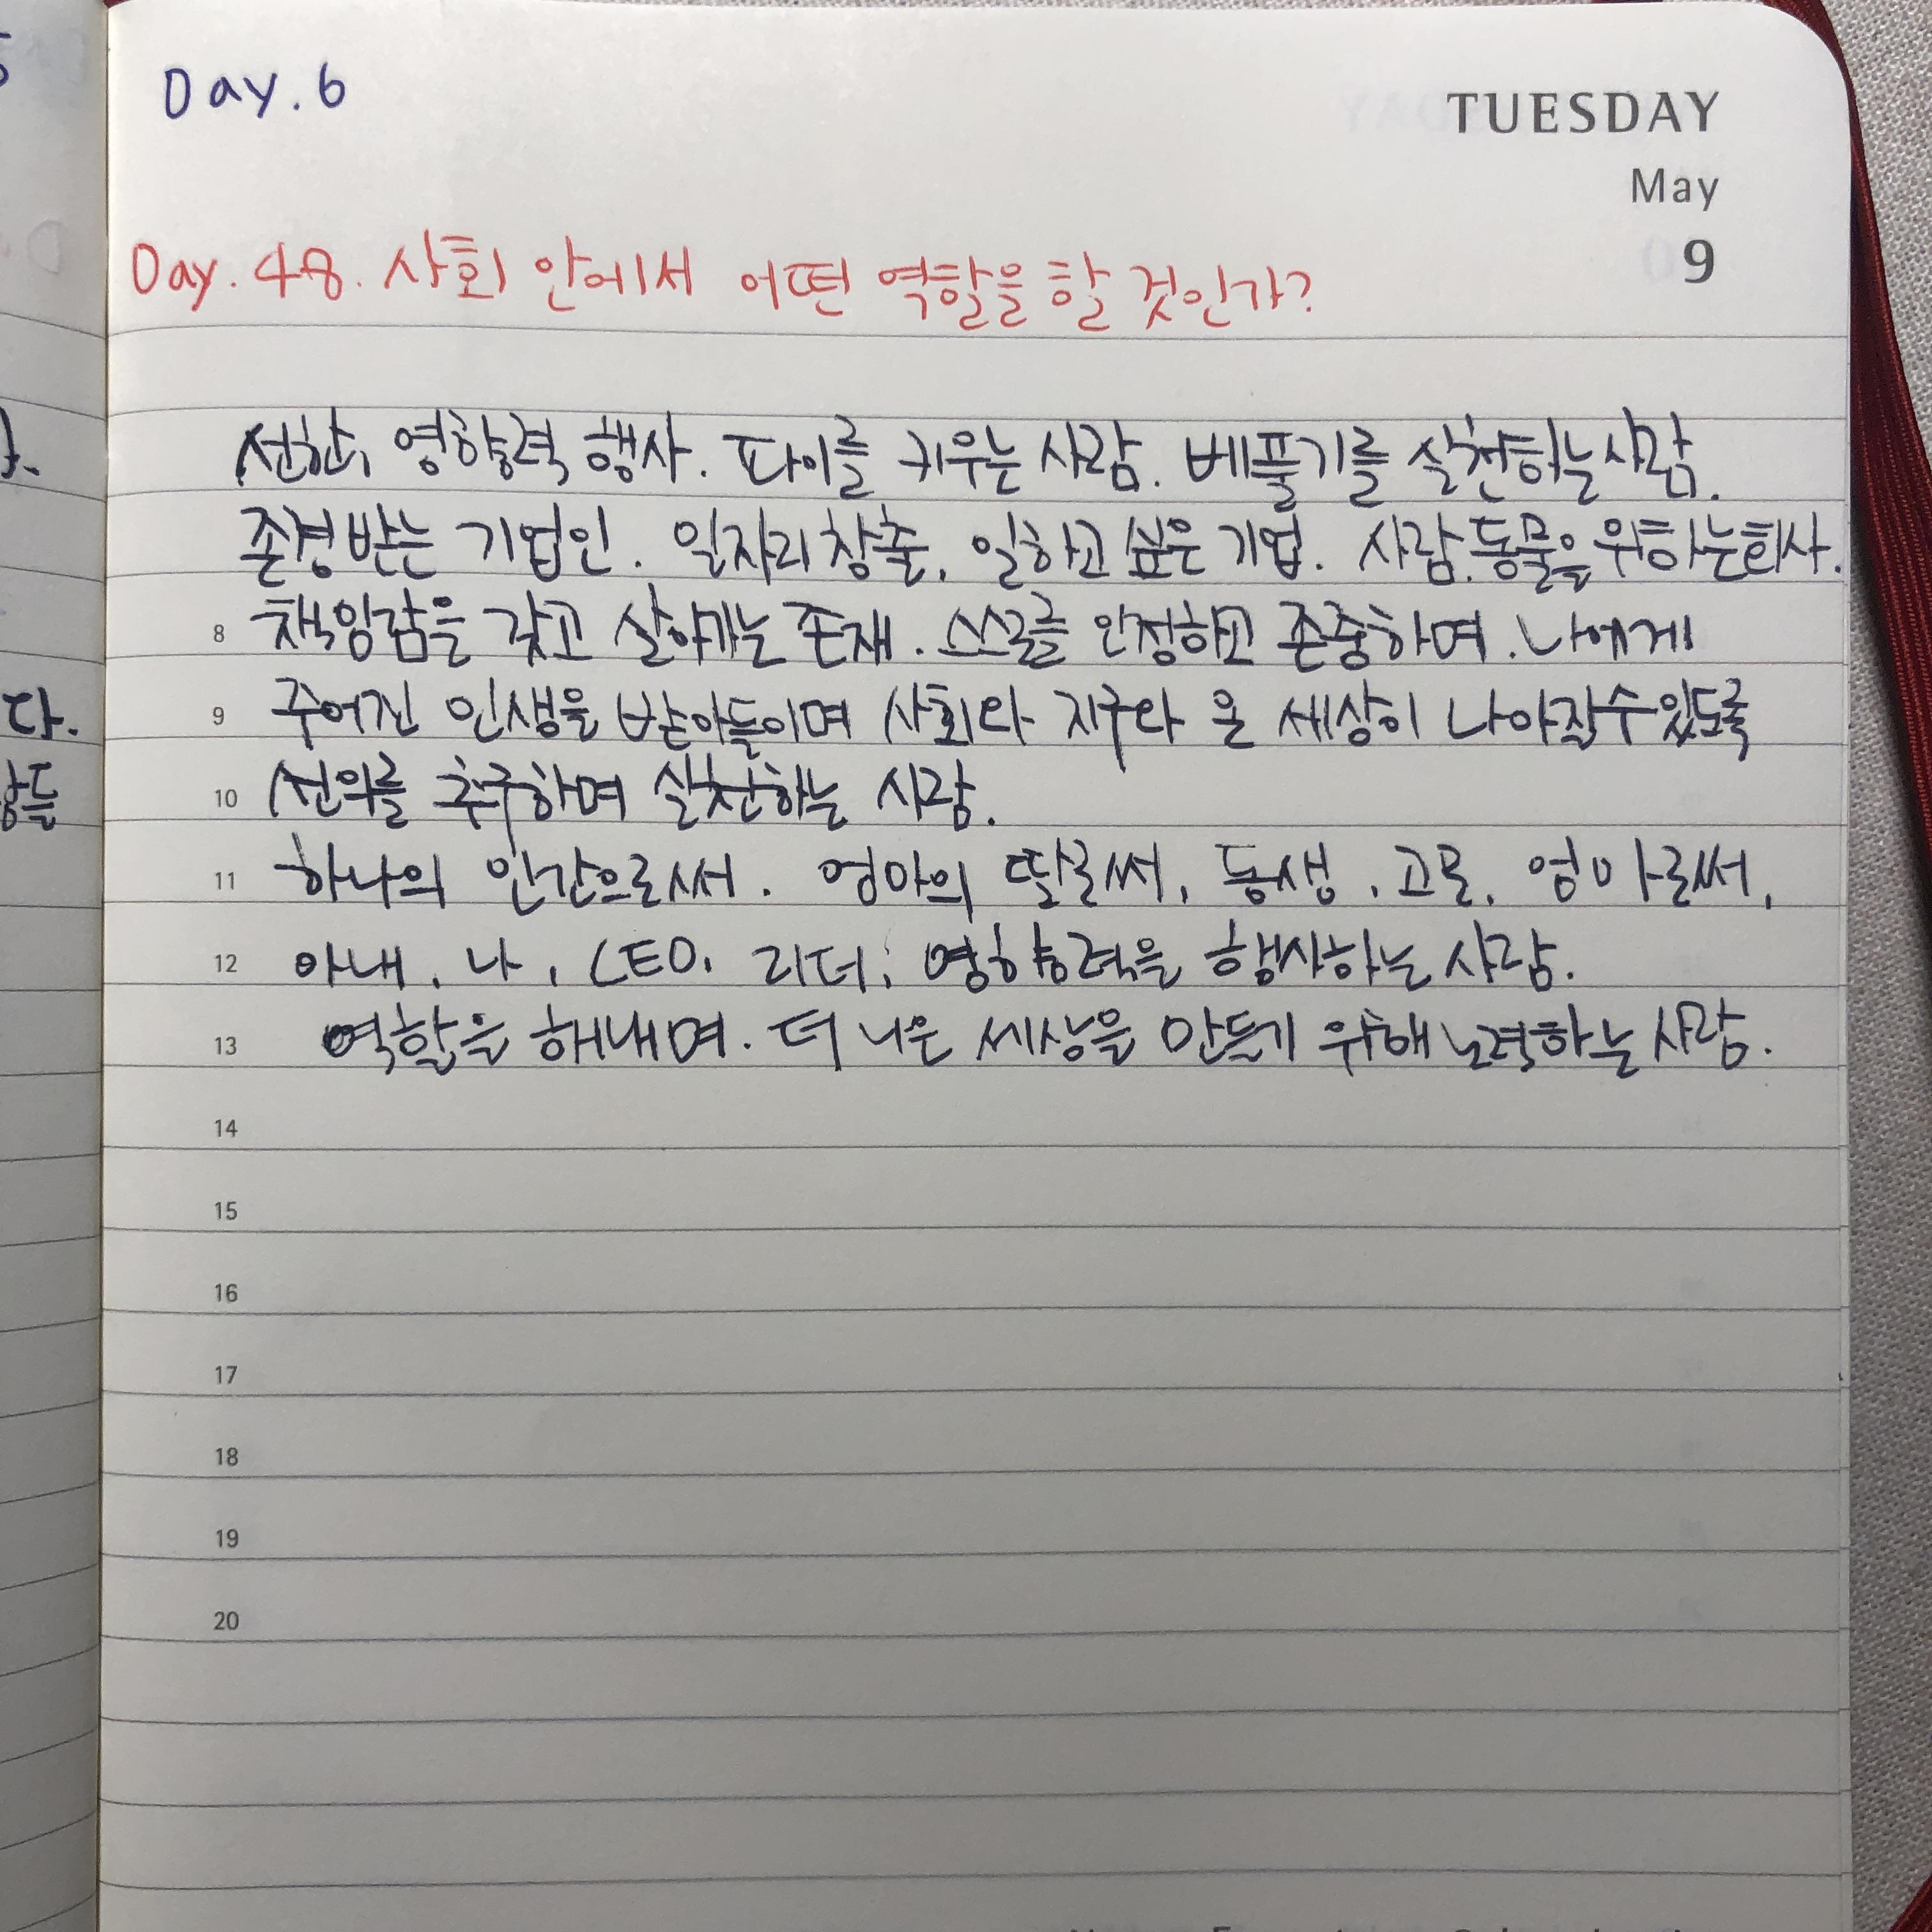 Day. 6
TUESDAY
May
9
Day. 48. 사회 안에서 어떤 역할을 할 것인가?
선한 영향력 행사. 파이를 키우는 사람. 베풀기를 실천하는 사람.
존경받는 기업인. 일자리 창출. 일하고 싶은 기업. 사람.동물을 위하는 회사.
8 책임감을 갖고 살아가는 존재. 스스로를 인정하고 존중하며. 나에게
9 주어진 인생을 받아들이며 사회와 지구와 온 세상이 나아질 수 있도록
10 선의를 추구하며 실천하는 사람.
11 하나의 인간으로써. 엄마의 딸로써, 동생, 고모, 엄마로써,
12 아내, 나, CEO, 리더, 영향력을 행사하는 사람.
13 역할을 해내며. 더 나은 세상을 만들기 위해 노력하는 사람.
14
15
16
17
18
19
20
다.